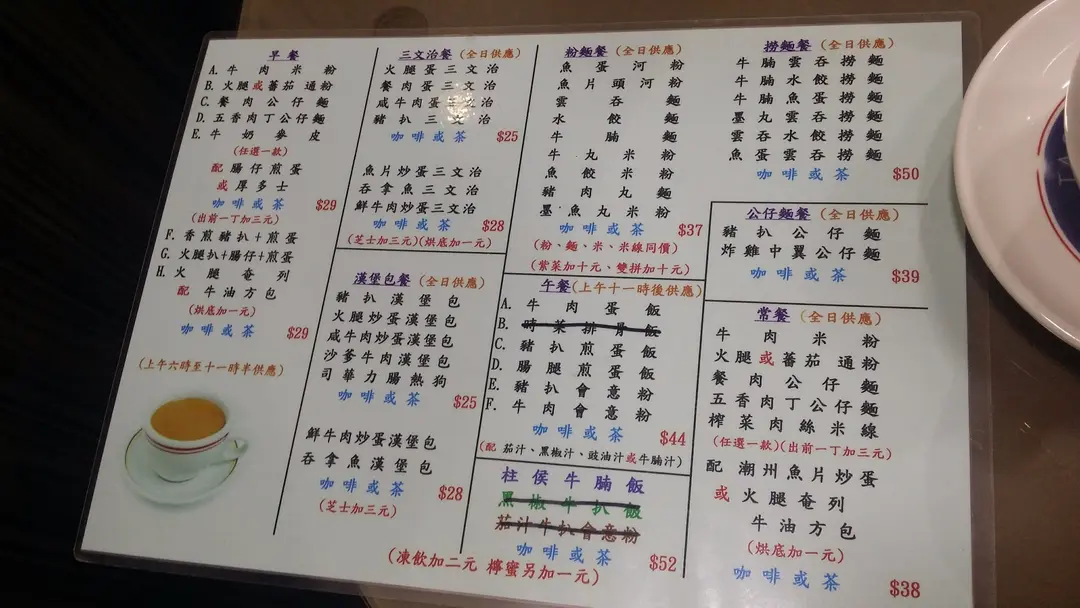 早餐
A. 牛肉米粉
B. 火腿或蕃茄通粉
C. 餐肉公仔麵
D. 五香肉丁公仔麵
E. 牛奶麥皮
(任選一款)
配腸仔煎蛋
或厚多士
咖啡或茶 $29
(出前一丁加三元)
F. 香煎豬扒+煎蛋
G. 火腿扒+腸仔+煎蛋
H. 火腿奄列
配牛油方包
(烘底加一元)
咖啡或茶 $29
(上午六時至十一時半供應)
三文治餐(全日供應)
火腿蛋三文治
餐肉蛋三文治
咸牛肉蛋三文治
豬扒三文治
咖啡或茶 $25
魚片炒蛋三文治
吞拿魚三文治
鮮牛肉炒蛋三文治
咖啡或茶 $28
(芝士加三元)(烘底加一元)
漢堡包餐(全日供應)
豬扒漢堡包
火腿炒蛋漢堡包
咸牛肉炒蛋漢堡包
沙爹牛肉漢堡包
司華力腸熱狗
咖啡或茶 $25
鮮牛肉炒蛋漢堡包
吞拿魚漢堡包
咖啡或茶 $28
(芝士加三元)
粉麵餐(全日供應)
魚蛋河粉
魚片頭河粉
雲吞麵
水餃麵
牛腩麵
牛丸米粉
魚餃米粉
豬肉丸麵
墨魚丸米粉
咖啡或茶 $37
(粉、麵、米、米線同價)
(紫菜加十元、雙拼加十元)
午餐(上午十一時後供應)
A. 牛肉蛋飯
B. 時菜排骨飯
C. 豬扒煎蛋飯
D. 腸腿煎蛋飯
E. 豬扒會意粉
F. 牛肉會意粉
咖啡或茶 $44
(配茄汁、黑椒汁、豉油汁或牛腩汁)
柱侯牛腩飯
黑椒牛扒飯
茄汁牛扒會意粉
咖啡或茶 $52
撈麵餐(全日供應)
牛腩雲吞撈麵
牛腩水餃撈麵
牛腩魚蛋撈麵
墨丸雲吞撈麵
雲吞水餃撈麵
魚蛋雲吞撈麵
咖啡或茶 $50
公仔麵餐(全日供應)
豬扒公仔麵
炸雞中翼公仔麵
咖啡或茶 $39
常餐(全日供應)
牛肉米粉
火腿或蕃茄通粉
餐肉公仔麵
五香肉丁公仔麵
榨菜肉絲米線
(任選一款)(出前一丁加三元)
配潮州魚片炒蛋
或火腿奄列
牛油方包
(烘底加一元)
咖啡或茶 $38
(凍飲加二元 檸蜜另加一元)